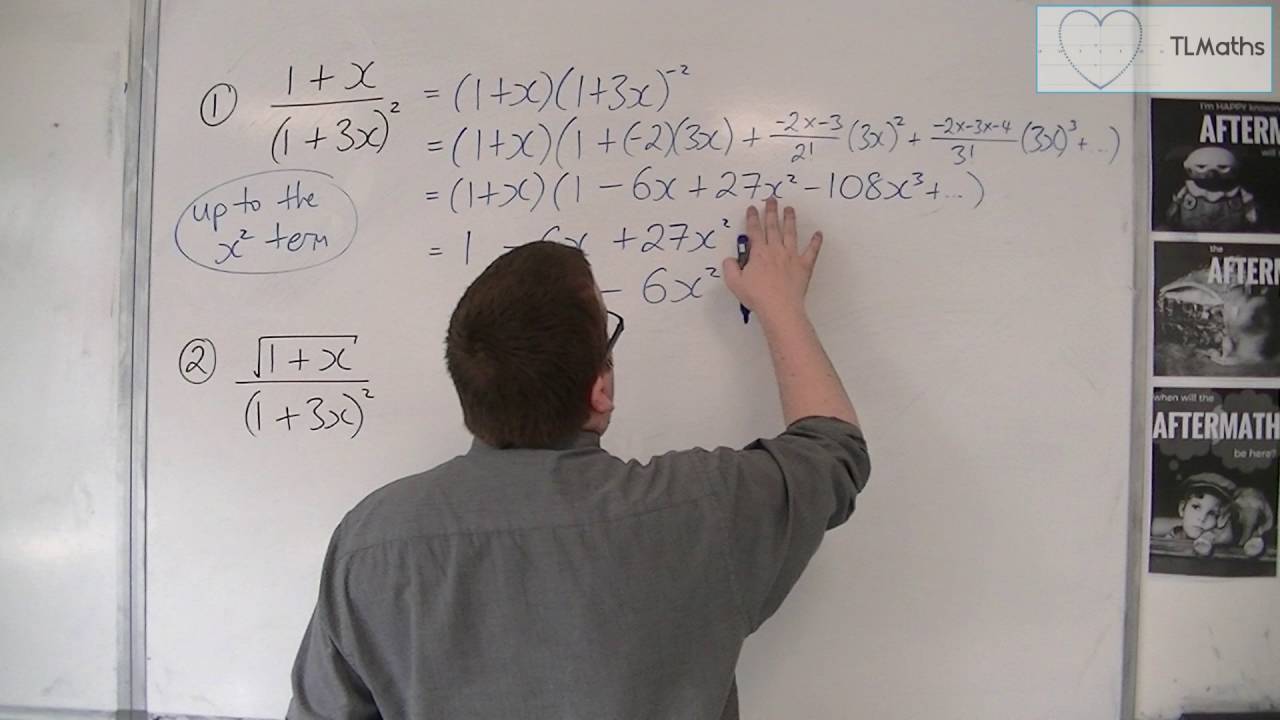 TLMaths
① (1 + x)/(1 + 3x)² = (1+x)(1+3x)⁻²
= (1+x)(1 + (-2)(3x) + (-2x-3)/2! (3x)² + (-2x-3x-4)/3! (3x)³ + ...)
= (1+x)(1 - 6x + 27x² - 108x³ + ...)
up to the
x² term
= 1 - 6x + 27x²
- 6x²
② √(1 + x)/(1 + 3x)²
I'm HAPPY
AFTERM
the
AFTERM
when will the
AFTERMATH
be here?